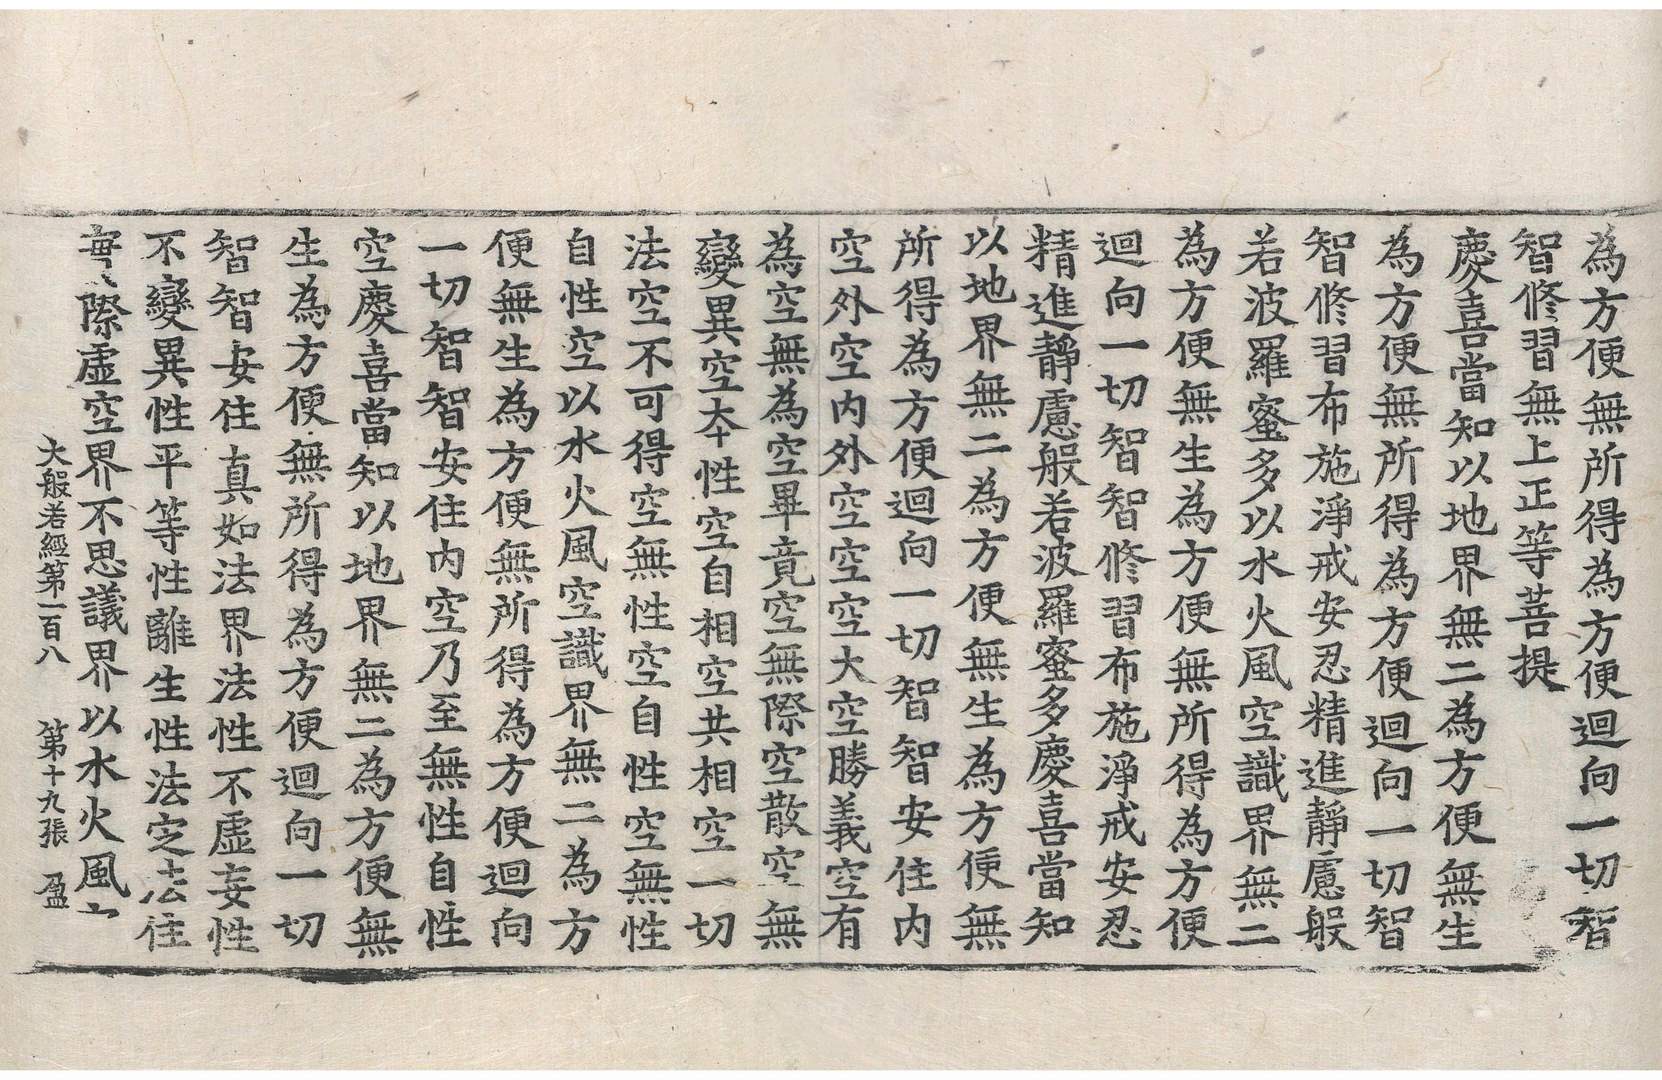 為方便無所得為方便迴向一切智
智修習無上正等菩提
慶喜當知以地界無二為方便無生
為方便無所得為方便迴向一切智
智修習布施淨戒安忍精進靜慮般
若波羅蜜多以水火風空識界無二
為方便無生為方便無所得為方便
迴向一切智智修習布施淨戒安忍
精進靜慮般若波羅蜜多慶喜當知
以地界無二為方便無生為方便無
所得為方便迴向一切智智安住內
空外空內外空空空大空勝義空有
為空無為空畢竟空無際空散空無
變異空本性空自相空共相空一切
法空不可得空無性空自性空無性
自性空以水火風空識界無二為方
便無生為方便無所得為方便迴向
一切智智安住內空乃至無性自性
空慶喜當知以地界無二為方便無
生為方便無所得為方便迴向一切
智智安住真如法界法性不虛妄性
不變異性平等性離生性法定法住
實際虛空界不思議界以水火風空
大般若經第一百八 第十九張 盈